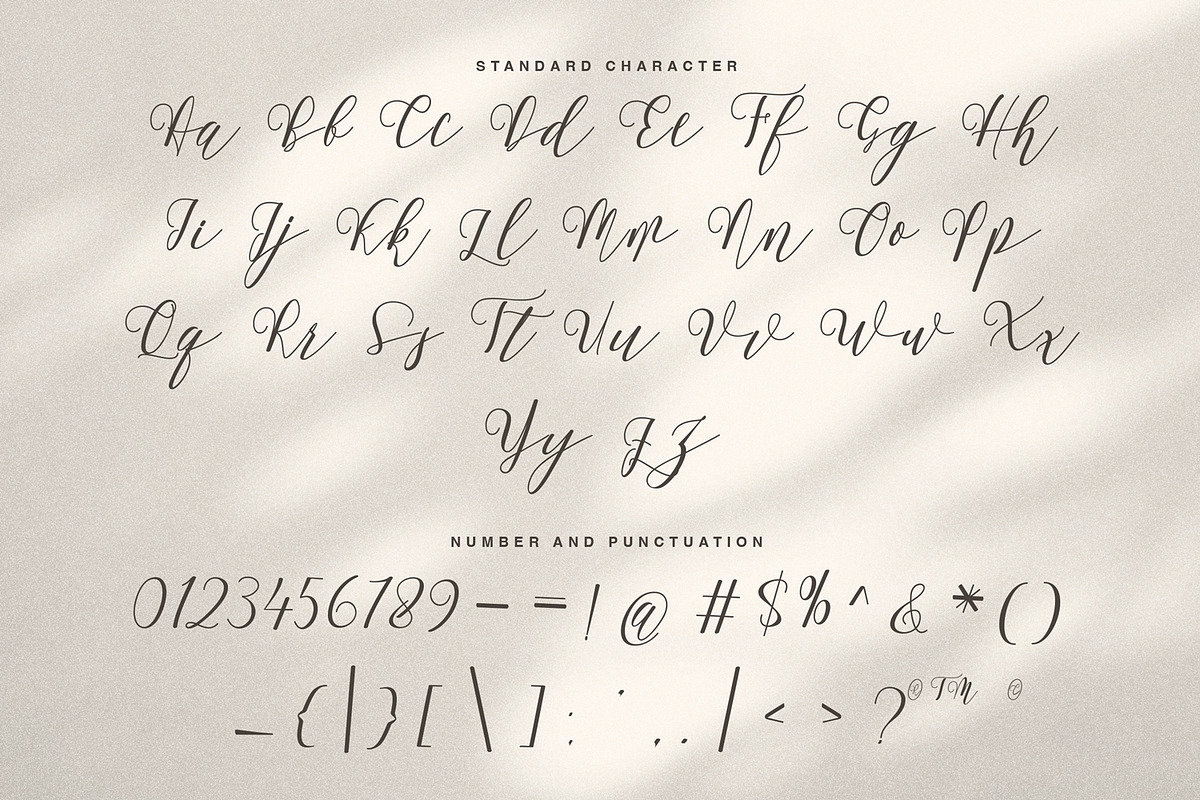 STANDARD CHARACTER
Aa Bb Cc Dd Ee Ff Gg Hh
Ii Jj Kk Ll Mm Nn Oo Pp
Qq Rr Ss Tt Uu Vv Ww Xx
Yy Zz
NUMBER AND PUNCTUATION
0123456789 – = ! @ # $ % ^ & * ( )
_ { | } [ \ ] : ' , . | < > ? ® TM ©